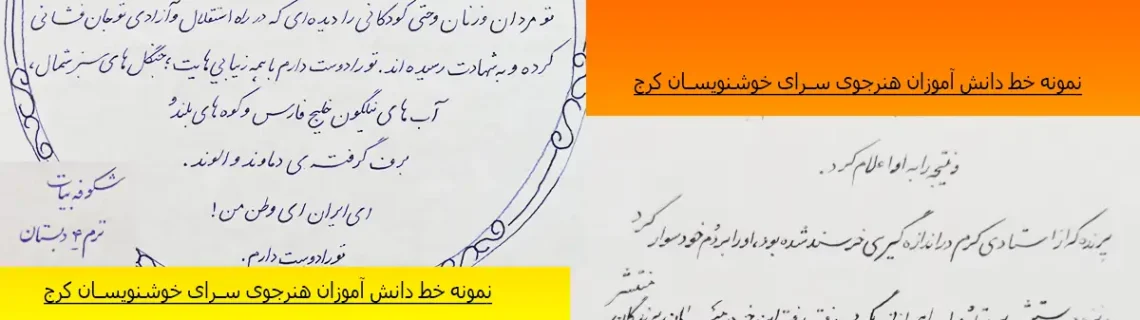 تو مردان و زنان و حتی کودکانی را دیده‌ای که در راه استقلال و آزادی تو جان فشانی
کرده و به شهادت رسیده اند. تو را دوست دارم با همه زیبایی هایت؛ جنگل های سبز شمال،
آب های نیلگون خلیج فارس و کوه های بلند و
برف گرفته ی دماوند و الوند.
ای ایران ای وطن من!
تو را دوست دارم.
شکوفه بیات
ترم ۴ دبستان
نمونه خط دانش آموزان هنرجوی سرای خوشنویسان کرج
نمونه خط دانش آموزان هنرجوی سرای خوشنویسان کرج
و نتیجه را به او اعلام کرد.
پرنده که از استادی کرم در اندازه گیری خرسند شده بود، او را بر دُم خود سوار کرد
منتشر